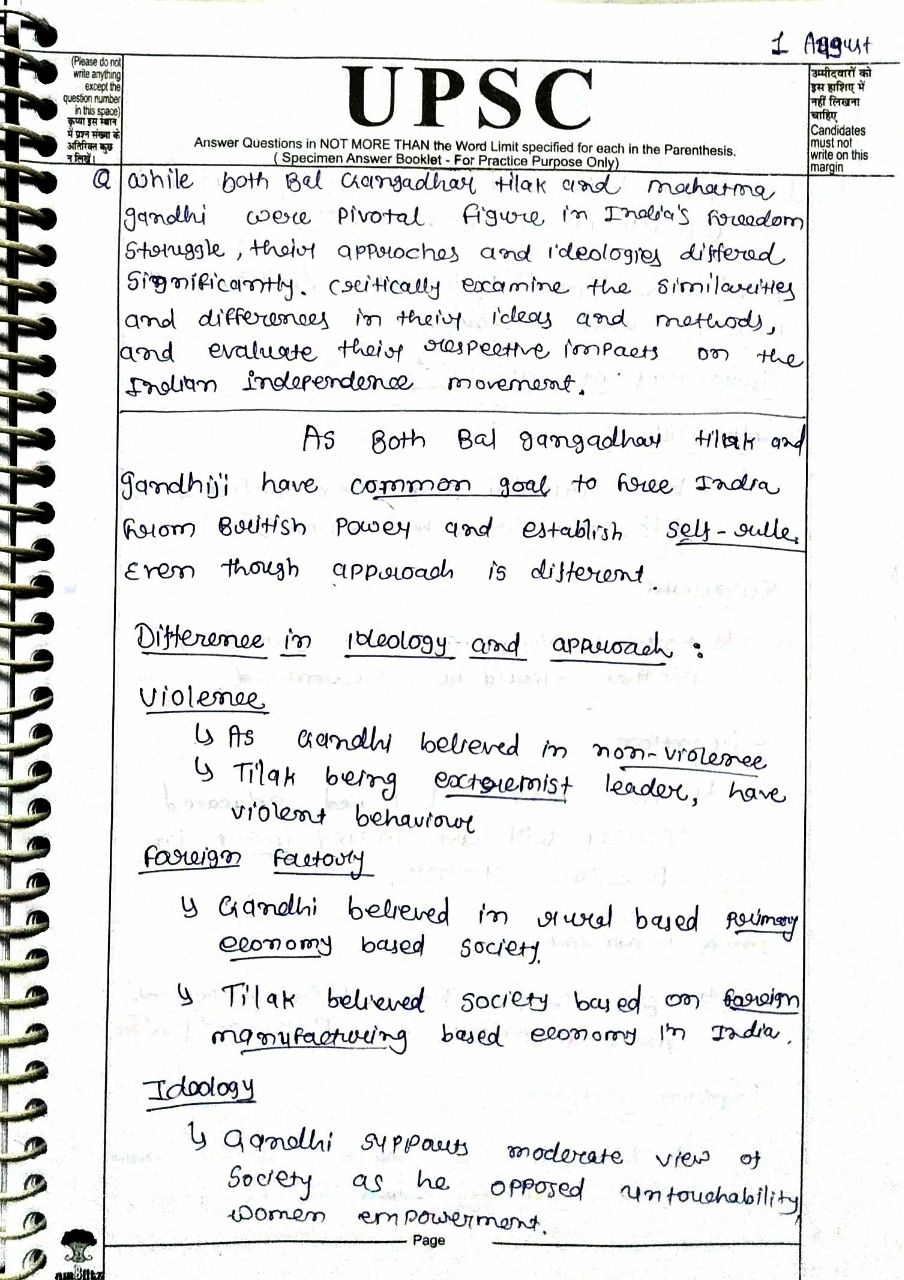 1 August
(Please do not
write anything
except the
question number
in this space)
कृपया इस स्थान
में प्रश्न संख्या के
अतिरिक्त कुछ
न लिखें।
UPSC
Answer Questions in NOT MORE THAN the Word Limit specified for each in the Parenthesis.
( Specimen Answer Booklet - For Practice Purpose Only)
उम्मीदवारों को
इस हाशिए में
नहीं लिखना
चाहिए
Candidates
must not
write on this
margin
Q While both Bal Gangadhar tilak and mahatma
gandhi were pivotal figure in India's freedom
struggle, their approches and ideologies differed
significantly. critically examine the similarities
and differences in their ideas and methods,
and evaluate their respective impacts on the
Indian independence movement.
As Both Bal gangadhar tilak and
gandhiji have common goal to free India
from British Power and establish self-rulle.
Even though approach is different.
Difference in Ideology and approach :
Violence
↳ As Gandhi believed in non-violence
↳ Tilak being extremist leader, have
violent behaviour
foreign factory
↳ Gandhi believed in rural based primary
economy based society.
↳ Tilak believed society based on foreign
manufacturing based economy in India.
Ideology
↳ Gandhi supports moderate view of
Society as he opposed untouchability,
women empowerment.
Page